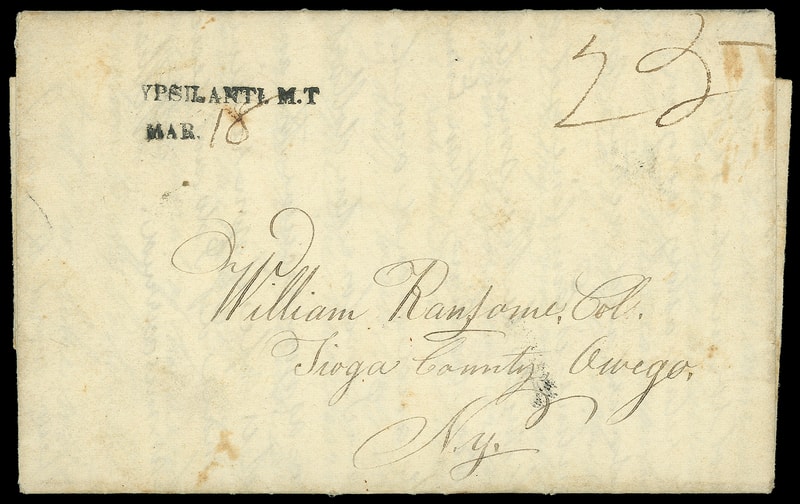 YPSILANTI. M.T
MAR. 18
25
William Ransome, Col.
Tioga County Owego,
N.y.